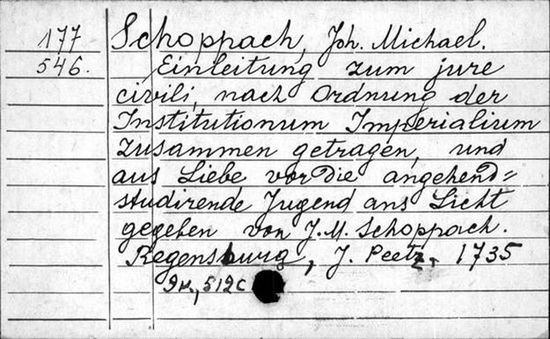 177 Schoppach, Joh. Michael.
546. Einleitung zum jure
civili, nach Ordnung der
Institutionum Imperialium
zusammen getragen, und
aus Liebe vor die angehend=
studirende Jugend ans Licht
gegeben von J. M. Schoppach.
Regensburg, J. Peetz, 1735
9 k., 512 c